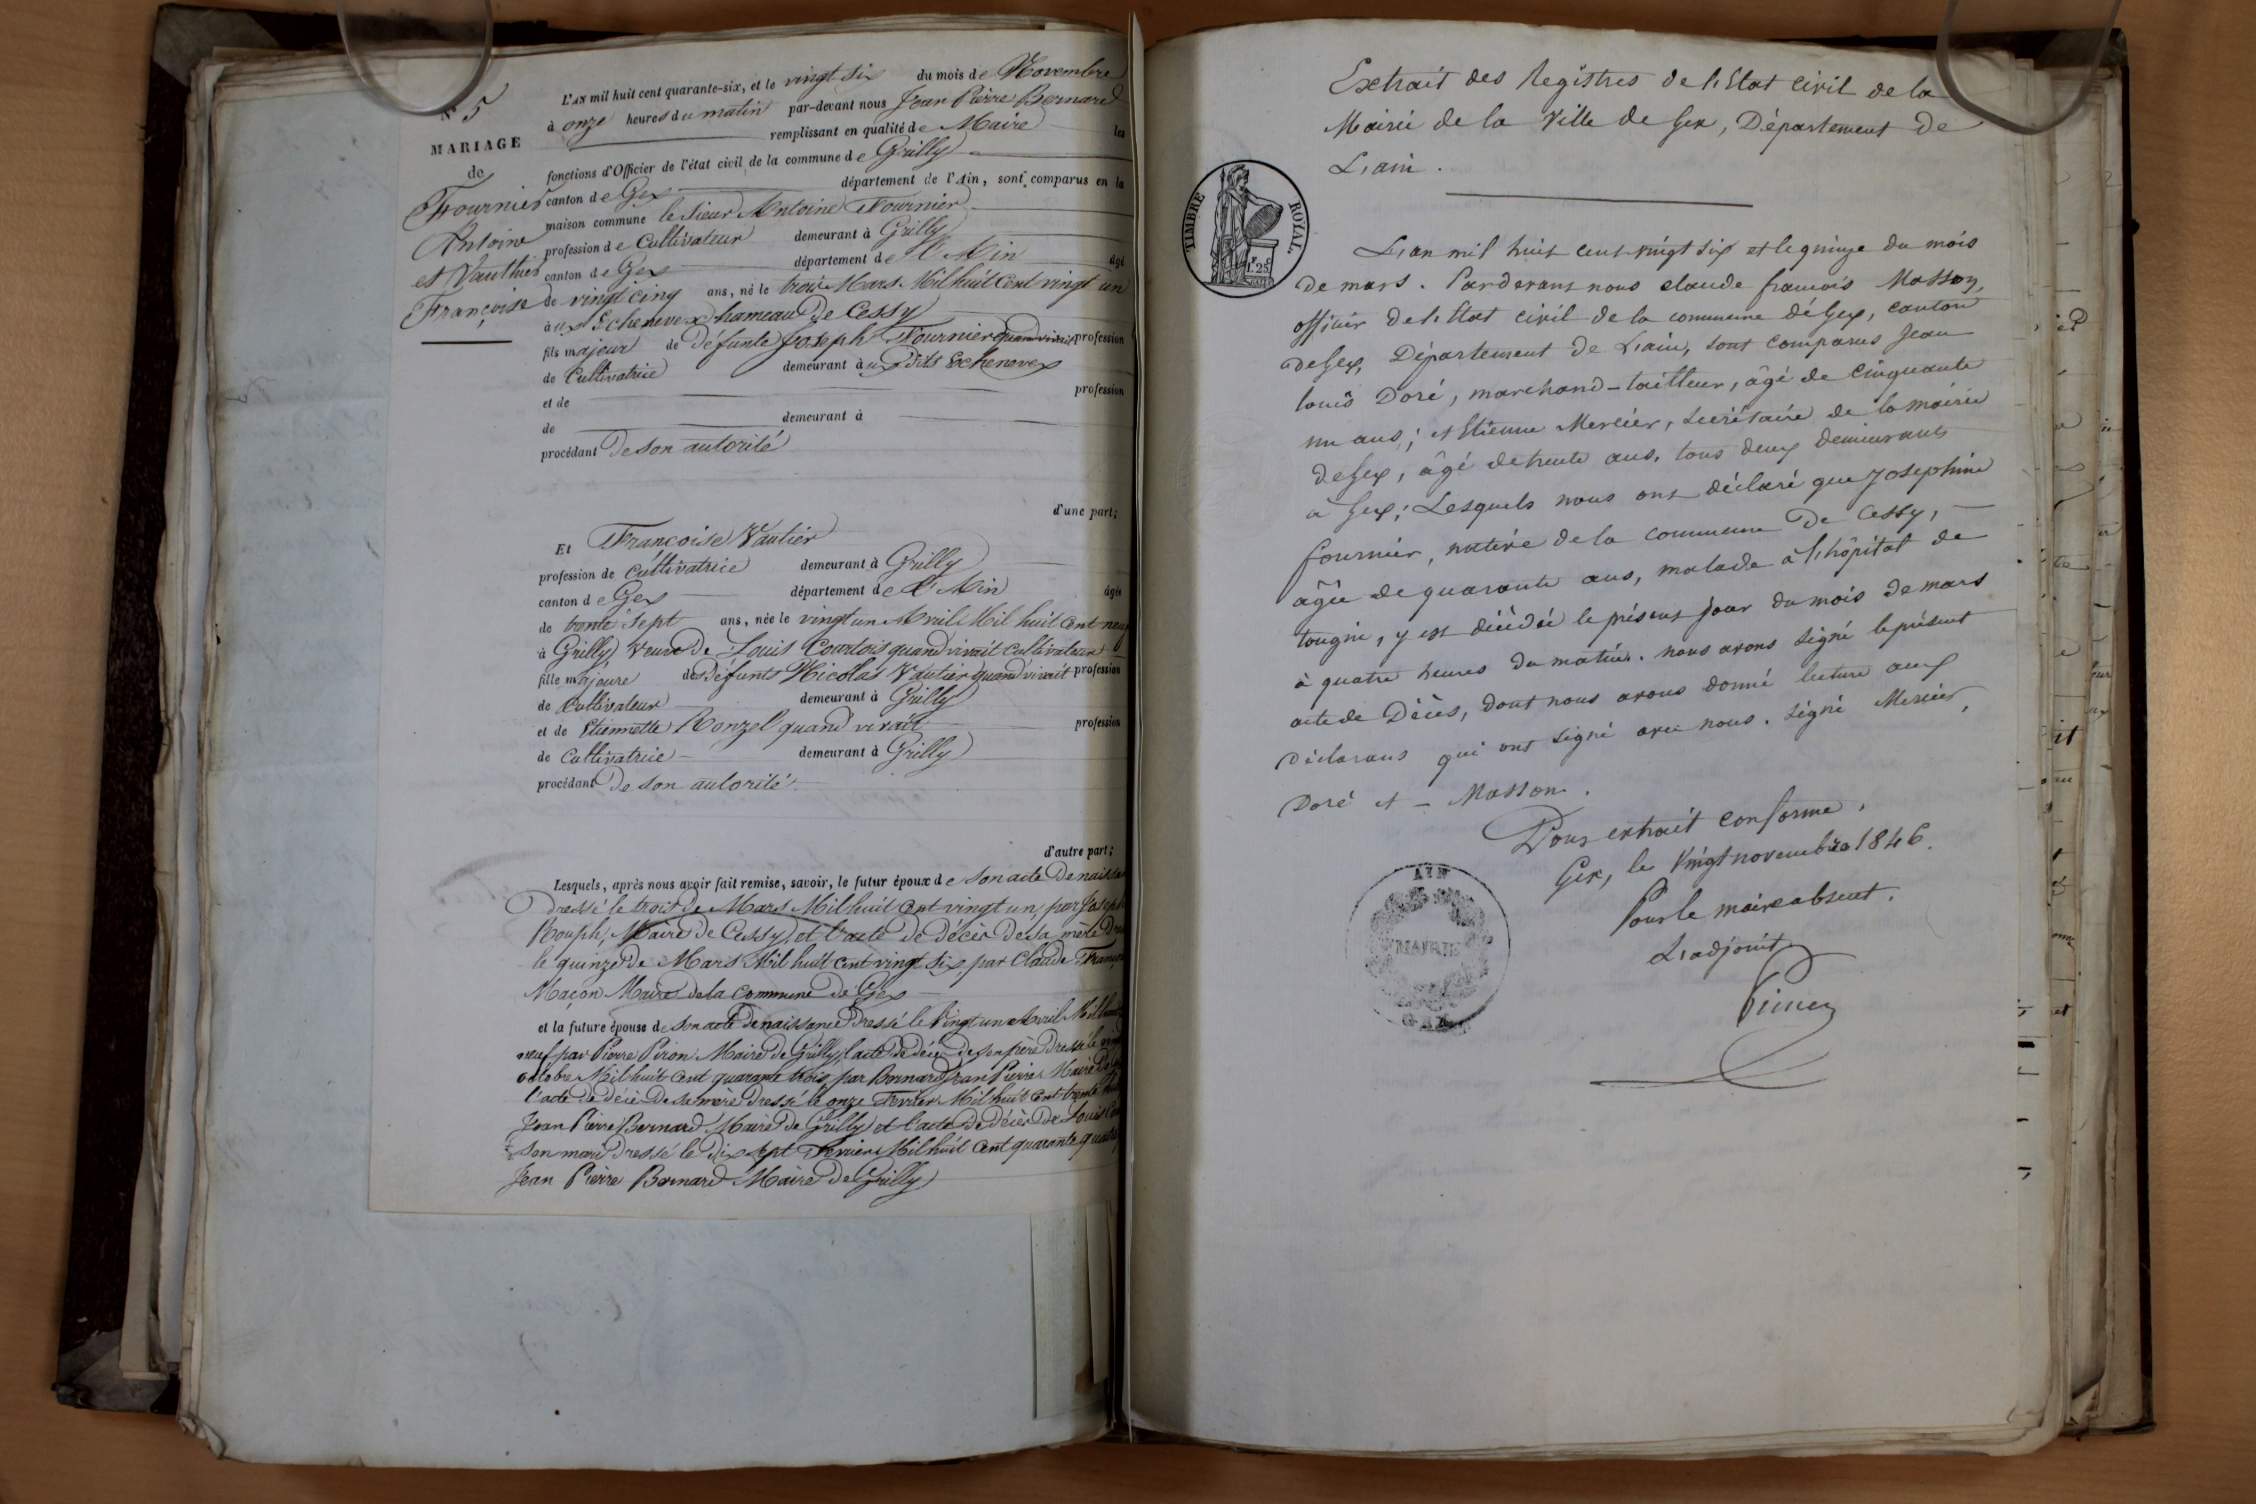 N° 5
MARIAGE
de
Fournier
Antoine
et Vauthier
Françoise
L'AN mil huit cent quarante-six, et le vingt six du mois de Novembre
à onze heures du matin par-devant nous Jean Pierre Bernard
remplissant en qualité de Maire les
fonctions d'Officier de l'état civil de la commune de Grilly
canton de Gex département de l'Ain, sont comparus en la
maison commune le sieur Antoine Fournier
profession de Cultivateur demeurant à Grilly
canton de Gex département de l'Ain âgé
de vingt cinq ans, né le trois Mars Mil huit Cent vingt un
à ux Echenevex hameau de Cessy
fils majeur de défunte Joseph Fournier quand vivait profession
de Cultivatrice demeurant à ux dits Echenevex
et de profession
de demeurant à
procédant De son autorité
d'une part;
Et Françoise Vautier
profession de cultivatrice demeurant à Grilly
canton de Gex département de l'Ain âgée
de trente sept ans, née le vingt un Avril Mil huit Cent neuf
à Grilly veuve De Louis Courtois quand vivait Cultivateur
fille majeure des défunts Nicolas Vautier quand vivait profession
de Cultivateur demeurant à Grilly
et de Etiennette Ronzel quand vivait profession
de Cultivatrice demeurant à Grilly
procédant De son autorité
d'autre part;
Lesquels, après nous avoir fait remise, savoir, le futur époux de son acte De naissa
Dressé le trois de Mars Mil huit Cent vingt un, par Joseph
Rouph, Maire de Cessy, et l'acte de décès de sa mère
le quinze De Mars Mil huit Cent vingt Six par Claude Franç
Maçon Maire de la Commune de Gex
et la future épouse de son acte De naissance Dressé le Vingt un Avril Mil
neuf par Pierre Piron Maire de Grilly, l'acte de décès de son père Dressé le
octobre Mil huit Cent quarante trois, par Bernard Jean Pierre Maire
l'acte de décès De sa mère Dressé le onze Fevrier Mil huit Cent trente
Jean Pierre Bernard Maire De Grilly et l'acte de Décès De Louis
son mari Dressé le Dix sept Fevrier Mil huit Cent quarante quatre
Jean Pierre Bernard Maire de Grilly
Extrait des Registres de l'Etat Civil de la
Mairie de la Ville de Gex, Département de
L'ain.
TIMBRE ROYAL
1F 25C
L'an mil huit cent vingt six et le quinze du mois
de mars. Pardevant nous claude francois Masson,
officier de l'Etat civil de la commune de Gex, canton
de Gex, Département de L'ain, sont comparus Jean
louis Doré, marchand-tailleur, âgé de Cinquante
un ans; et Etienne Mercier, secrétaire de la mairie
de Gex, âgé de trente ans, tous deux demeurants
à Gex; Lesquels nous ont déclaré que Josephine
fournier, native de la commune De Cessy,
âgée de quarante ans, malade à l'hôpital de
tougin, y est décédée le présent jour du mois de mars
à quatre heures du matin. nous avons signé le présent
acte de Décès, dont nous avons donné lecture aux
Déclarans qui ont signé avec nous. signé Mercier,
Doré et - Masson.
Pour extrait conforme,
Gex, le Vingt novembre 1846.
Pour le maire absent.
L'adjoint
AIN
MAIRIE